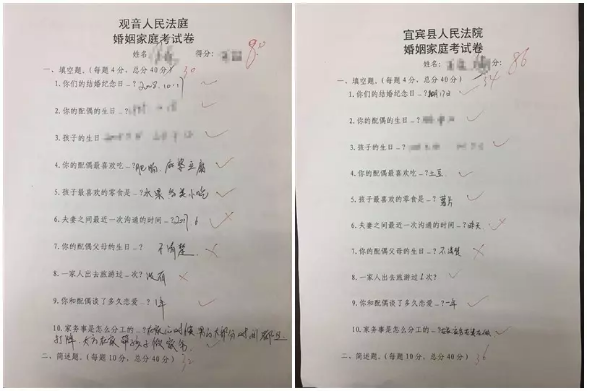 观音人民法庭
婚姻家庭考试卷
姓名: 得分: 80
一、填空题。(每题4分，总分40分) 30
1.你们的结婚纪念日_?2008.10.17
2.你的配偶的生日_?
3.孩子的生日
4.你的配偶最喜欢吃_?肥肠 麻婆豆腐
5.孩子最喜欢的零食是_?水果 各类小吃
6.夫妻之间最近一次沟通的时间_?2017.6
7.你的配偶父母的生日_? 不清楚
8.一家人出去旅游过_次?没有
9.你和配偶谈了多久恋爱_? 1年
10.家务事是怎么分工的_?
二、简述题。(每题10分，总分40分)
宜宾县人民法院
婚姻家庭考试卷
姓名: 分: 86
一、填空题。(每题4分，总分40分) 34
1.你们的结婚纪念日_?
2.你的配偶的生日
3.孩子的生日_?
4.你的配偶最喜欢吃_?土豆
5.孩子最喜欢的零食是_?薯片
6.夫妻之间最近一次沟通的时间_?昨天
7.你的配偶父母的生日_?不清楚
8.一家人出去旅游过 次?
9.你和配偶谈了多久恋爱_?一年
10.家务事是怎么分工的_?
二、简述题。(每题10分，总分40分)